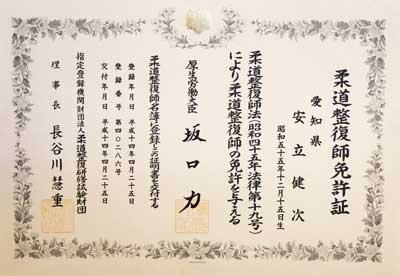 柔道整復師免許証
愛知県
安立健次
昭和五十五年十二月十五日生
柔道整復師法（昭和四十五年法律第十九号）
により柔道整復師の免許を与える
厚生労働大臣 坂口力
柔道整復師名簿に登録しこの証明書を交付する
登録年月日 平成十四年四月二十五日
登録番号 第四〇二八六号
交付年月日 平成十四年四月二十五日
指定登録機関財団法人柔道整復研修試験財団
理事長 長谷川慧重